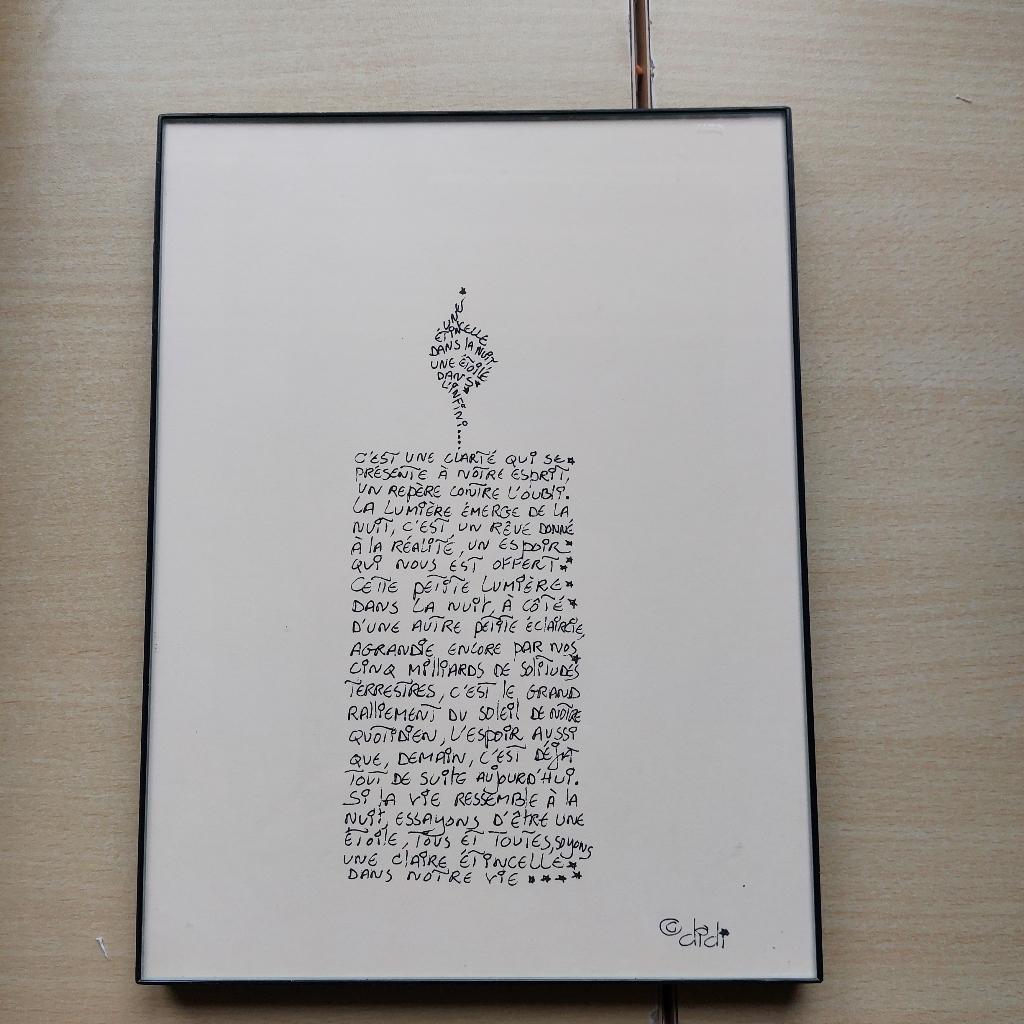 UNE
ÉTINCELLE
DANS LA NUIT,
UNE ÉTOILE
DANS
L'INFINI.....
C'EST UNE CLARTÉ QUI SE
PRÉSENTE À NOTRE ESPRIT,
UN REPÈRE CONTRE L'OUBLI.
LA LUMIÈRE ÉMERGE DE LA
NUIT, C'EST UN RÊVE DONNÉ
À LA RÉALITÉ, UN ESPOIR
QUI NOUS EST OFFERT.
CETTE PETITE LUMIÈRE
DANS LA NUIT, À CÔTÉ
D'UNE AUTRE PETITE ÉCLAIRCIE,
AGRANDIE ENCORE PAR NOS
CINQ MILLIARDS DE SOLITUDES
TERRESTRES, C'EST LE GRAND
RALLIEMENT DU SOLEIL DE NOTRE
QUOTIDIEN, L'ESPOIR AUSSI
QUE, DEMAIN, C'EST DÉJÀ
TOUT DE SUITE AUJOURD'HUI.
SI LA VIE RESSEMBLE À LA
NUIT, ESSAYONS D'ÊTRE UNE
ÉTOILE, TOUS ET TOUTES, SOYONS
UNE CLAIRE ÉTINCELLE
DANS NOTRE VIE ★★★★
© didi